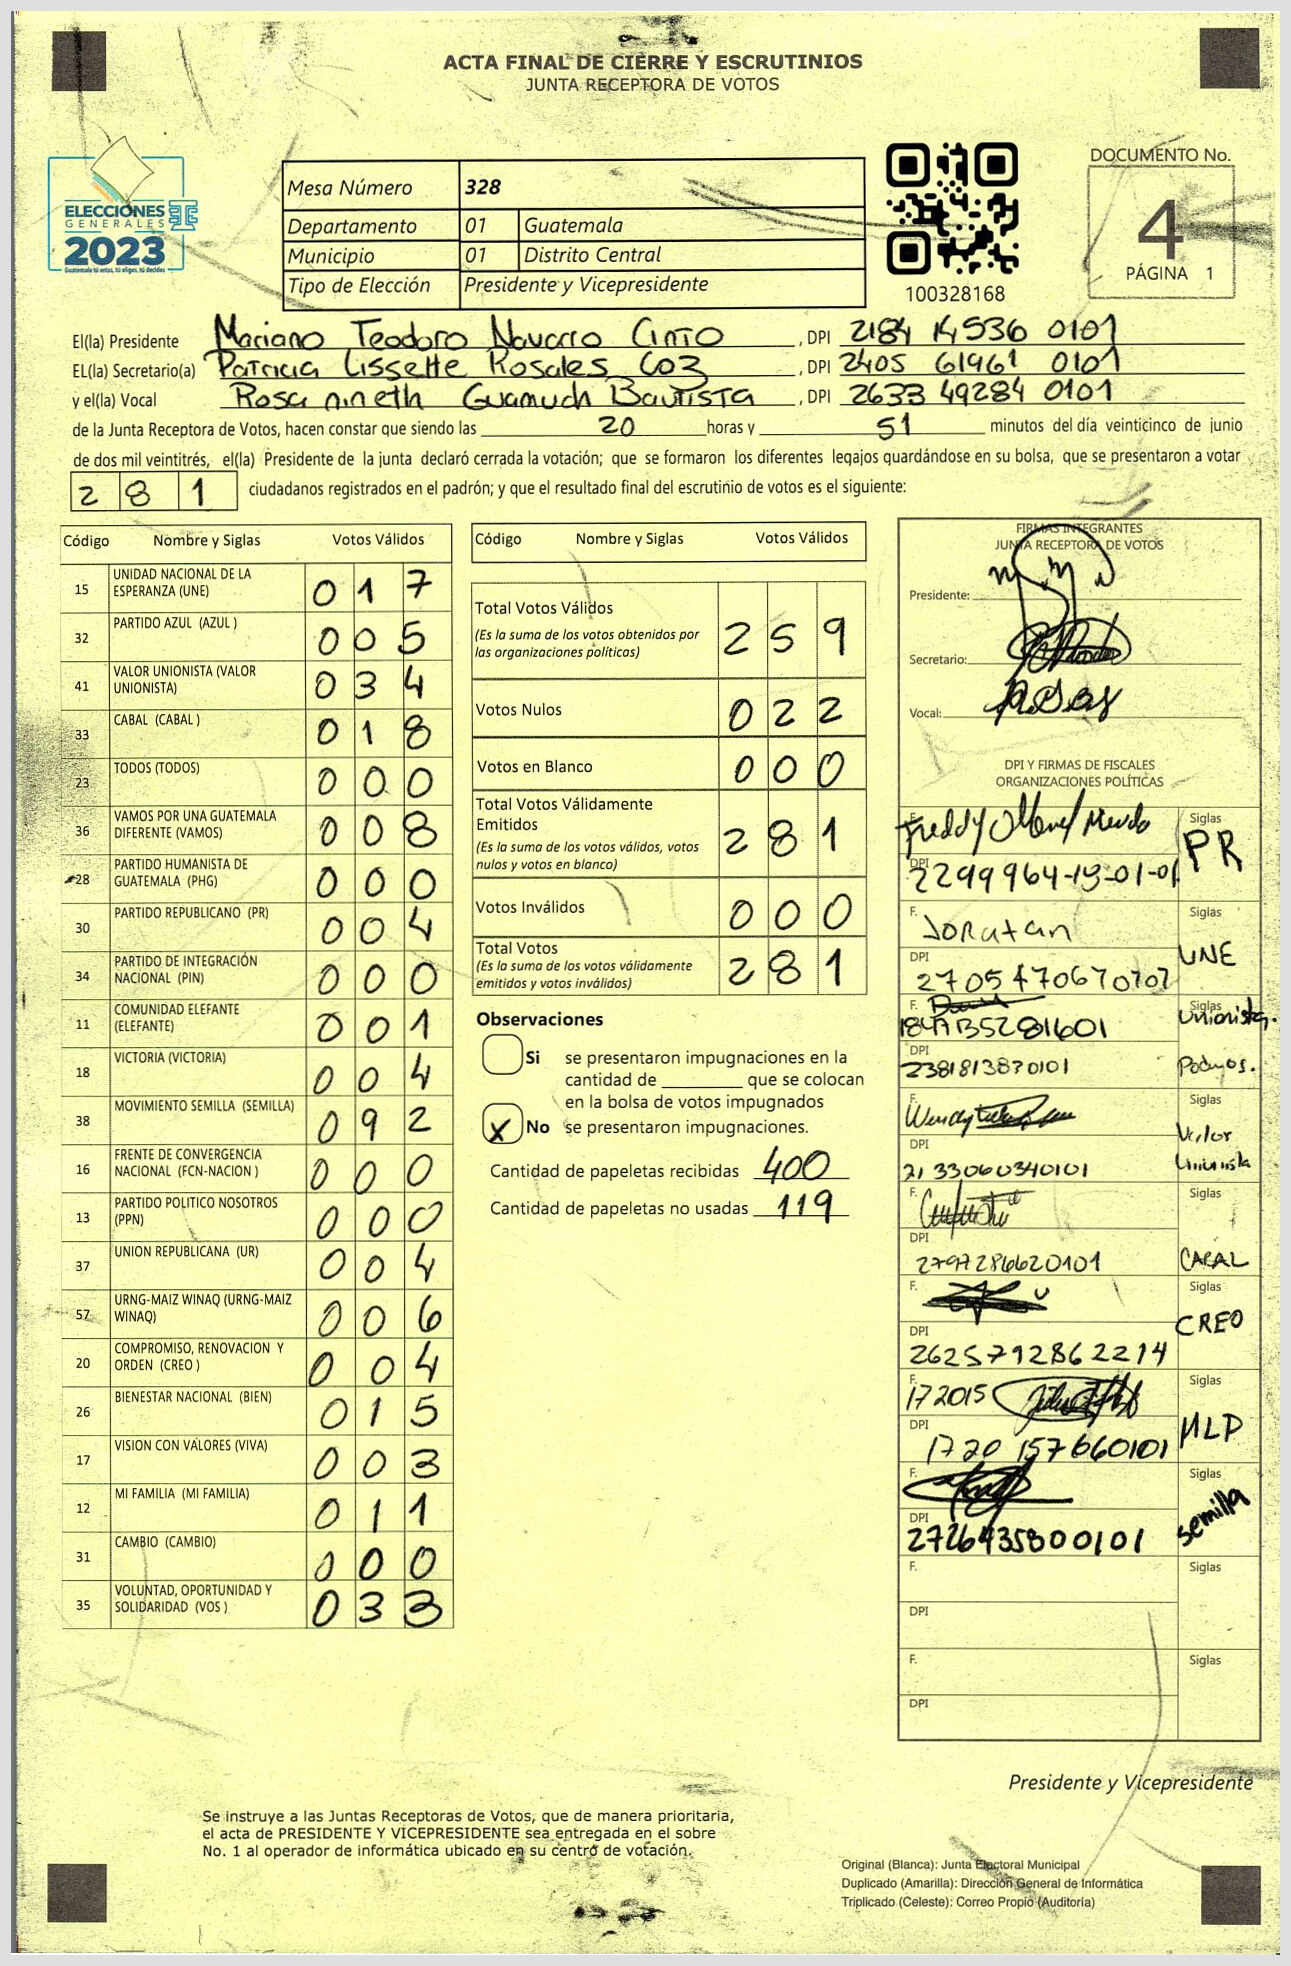 ACTA FINAL DE CIERRE Y ESCRUTINIOS
JUNTA RECEPTORA DE VOTOS
ELECCIONES
GENERALES
2023
Guatemala tú votas, tú eliges, tú decides
Mesa Número 328
Departamento 01 Guatemala
Municipio 01 Distrito Central
Tipo de Elección Presidente y Vicepresidente
100328168
DOCUMENTO No.
4
PÁGINA 1
El(la) Presidente Mariano Teodoro Navarro Cinto, DPI 2184 14536 0101
EL(la) Secretario(a) Patricia Lissette Rosales Coz, DPI 2405 61961 0101
y el(la) Vocal Rosa nineth Guamuch Bautista, DPI 2633 49284 0101
de la Junta Receptora de Votos, hacen constar que siendo las 20 horas y 51 minutos del día veinticinco de junio
de dos mil veintitrés, el(la) Presidente de la junta declaró cerrada la votación; que se formaron los diferentes legajos guardándose en su bolsa, que se presentaron a votar
281 ciudadanos registrados en el padrón; y que el resultado final del escrutinio de votos es el siguiente:
Código Nombre y Siglas Votos Válidos
15 UNIDAD NACIONAL DE LA ESPERANZA (UNE) 017
32 PARTIDO AZUL (AZUL ) 005
41 VALOR UNIONISTA (VALOR UNIONISTA) 034
33 CABAL (CABAL ) 018
23 TODOS (TODOS) 000
36 VAMOS POR UNA GUATEMALA DIFERENTE (VAMOS) 008
28 PARTIDO HUMANISTA DE GUATEMALA (PHG) 000
30 PARTIDO REPUBLICANO (PR) 004
34 PARTIDO DE INTEGRACIÓN NACIONAL (PIN) 000
11 COMUNIDAD ELEFANTE (ELEFANTE) 001
18 VICTORIA (VICTORIA) 004
38 MOVIMIENTO SEMILLA (SEMILLA) 092
16 FRENTE DE CONVERGENCIA NACIONAL (FCN-NACION ) 000
13 PARTIDO POLITICO NOSOTROS (PPN) 000
37 UNION REPUBLICANA (UR) 004
57 URNG-MAIZ WINAQ (URNG-MAIZ WINAQ) 006
20 COMPROMISO, RENOVACION Y ORDEN (CREO ) 004
26 BIENESTAR NACIONAL (BIEN) 015
17 VISION CON VALORES (VIVA) 003
12 MI FAMILIA (MI FAMILIA) 011
31 CAMBIO (CAMBIO) 000
35 VOLUNTAD, OPORTUNIDAD Y SOLIDARIDAD (VOS ) 033
Código Nombre y Siglas Votos Válidos
Total Votos Válidos 259
(Es la suma de los votos obtenidos por
las organizaciones políticas)
Votos Nulos 022
Votos en Blanco 000
Total Votos Válidamente
Emitidos 281
(Es la suma de los votos válidos, votos
nulos y votos en blanco)
Votos Inválidos 000
Total Votos 281
(Es la suma de los votos válidamente
emitidos y votos inválidos)
Observaciones
Si se presentaron impugnaciones en la
cantidad de ________ que se colocan
en la bolsa de votos impugnados
X No se presentaron impugnaciones.
Cantidad de papeletas recibidas 400
Cantidad de papeletas no usadas 119
FIRMAS INTEGRANTES
JUNTA RECEPTORA DE VOTOS
Presidente:
Secretario:
Vocal:
DPI Y FIRMAS DE FISCALES
ORGANIZACIONES POLÍTICAS
Freddy
Siglas PR
DPI 2299964-19-01-01
F. Jonatan
Siglas UNE
DPI 2705470670707
F.
Siglas Unionista.
DPI 2381813870101
Podemos.
F. Wendy
Siglas Valor Unionista
DPI 2133060340101
F.
Siglas CABAL
DPI 2797286620101
F.
Siglas CREO
DPI 2625792862214
F. 172015
Siglas MLP
DPI 1720 157660101
F.
Siglas semilla
DPI 2726435800101
F.
Siglas
DPI
F.
Siglas
DPI
Presidente y Vicepresidente
Se instruye a las Juntas Receptoras de Votos, que de manera prioritaria,
el acta de PRESIDENTE Y VICEPRESIDENTE sea entregada en el sobre
No. 1 al operador de informática ubicado en su centro de votación.
Original (Blanca): Junta Electoral Municipal
Duplicado (Amarilla): Dirección General de Informática
Triplicado (Celeste): Correo Propio (Auditoría)